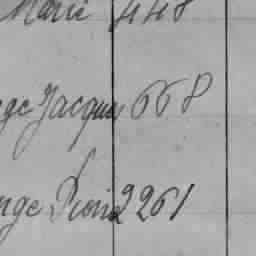 Marie 448
ge Jacques 668
nge Pierre 2261